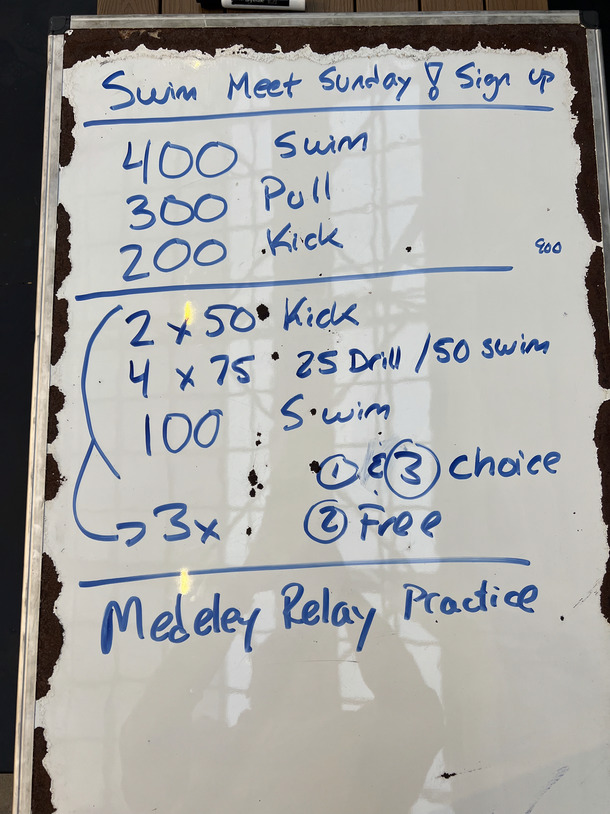 Swim Meet Sunday! Sign up
400 Swim
300 Pull
200 Kick
900
2 x 50 Kick
4 x 75 25 Drill / 50 swim
100 Swim
① & ③ choice
3x ② Free
Medeley Relay Practice